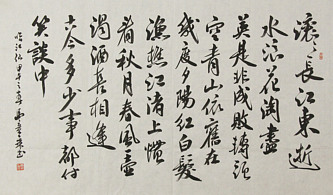 滚々長江東逝
水浪花淘盡
英是非成敗轉頭
空青山依舊在
幾度夕陽紅白髮
漁樵江渚上慣
看秋月春風一壺
濁酒喜相逢
古今多少事都付
笑談中
臨江仙 甲午之春